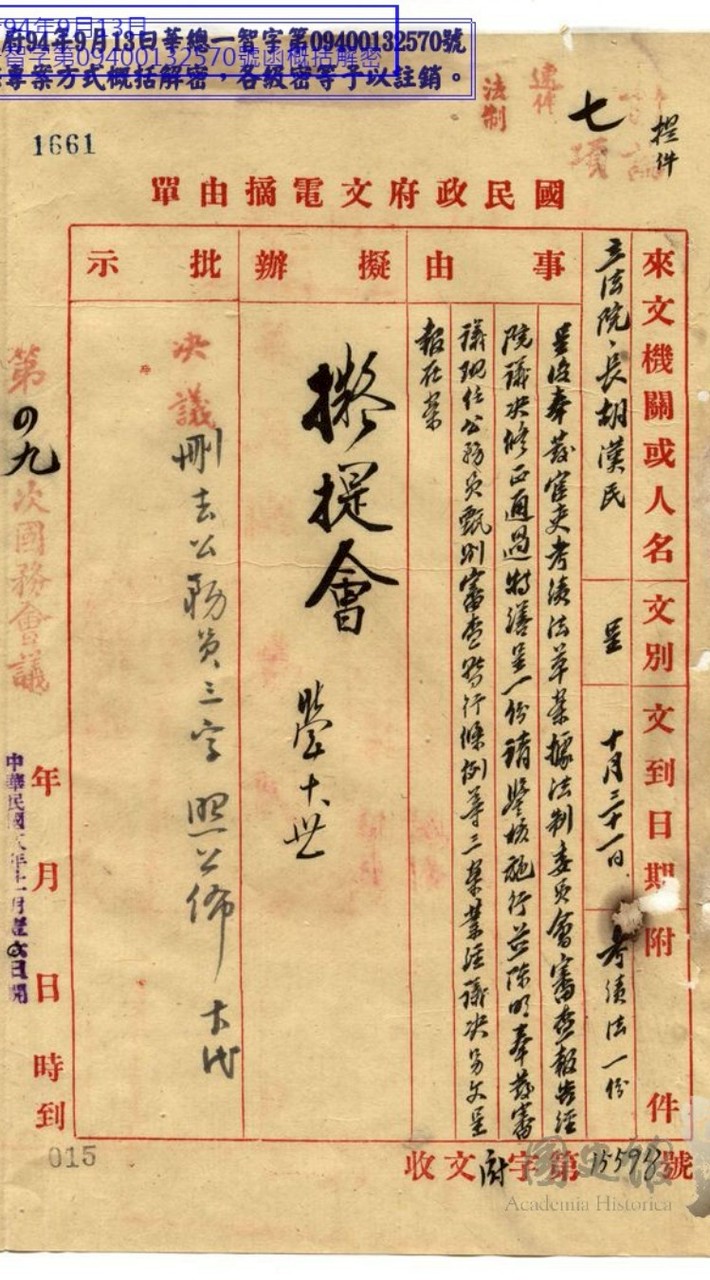 府94年9月13日華總一智字第09400132570號
專案方式概括解密，各級密等予以註銷。
94年9月13日
字第09400132570號函概括解密
1661
提件
七
項
法制
國民政府文電摘由單
來文機關或人名
立法院院長胡漢民
文別
呈
文到日期
十月三十一日
附件
考績法一份
事由
呈復奉發官吏考績法草案據法制委員會審查報告經
院議決修正通過特繕呈一份請鑒核施行並陳明奉發審
議現任公務員甄別審查暫行條例等三案業經議決另文呈
報在案
擬辦
擬提會
十卅
批示
决議
刪去公務員三字 照公佈
第四九次國務會議
年月日時到
收文府字第15598號
015
國史館
Academia Historica